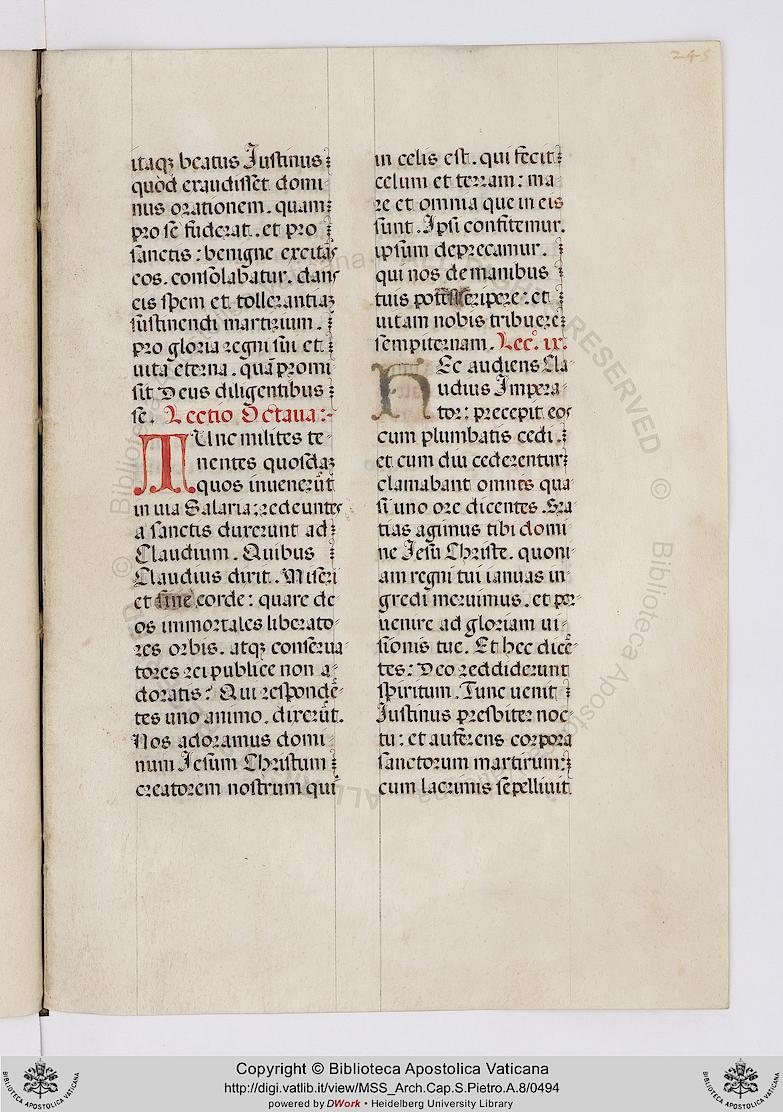 245
itaqꝫ beatus Justinus
quod exaudisset domi-
nus orationem. quam
pro se fuderat. et pro
sanctis: benigne excitãs
eos. consolabatur. dans
eis spem et tollerantiaꝫ
sustinendi martirium.
pro gloria regni sui et
uita eterna. quã promi
sit Deus diligentibus
se. Lectio Octaua:-
TUnc milites te-
nentes quosdaꝫ
quos inuenerũt
in uia Salaria: redeuntes
a sanctis duxerunt ad
Claudium. Quibus
Claudius dixit. Miseri
et sine corde: quare de-
os immortales liberato-
res orbis. atqꝫ conserua-
tores rei publice non a-
doratis? Qui respondẽ-
tes uno animo. dixerũt.
Nos adoramus domi-
num Jesum Christum
creatorem nostrum qui
in celis est. qui fecit
celum et terram: ma-
re et omnia que in eis
sunt. Ipsi confitemur.
ipsum deprecamur.
qui nos de manibus
tuis potest eripere: et
uitam nobis tribuere
sempiternam. Lec.º ix.
HEc audiens Cla-
udius Impera-
tor: precepit eos
cum plumbatis cedi.
et cum diu cederentur
clamabant omnes qua
si uno ore dicentes. Gra
tias agimus tibi domi
ne Jesu Christe. quoni-
am regni tui ianuas in-
gredi meruimus. et per-
uenire ad gloriam ui-
sionis tue. Et hec dicẽ-
tes: Deo reddiderunt
spiritum. Tunc uenit
Justinus presbiter noc-
tu: et auferens corpora
sanctorum martirum:
cum lacrimis sepelliuit.
Copyright © Biblioteca Apostolica Vaticana
http://digi.vatlib.it/view/MSS_Arch.Cap.S.Pietro.A.8/0494
powered by DWork • Heidelberg University Library
BIBLIOTECA APOSTOLICA VATICANA
BIBLIOTECA APOSTOLICA VATICANA